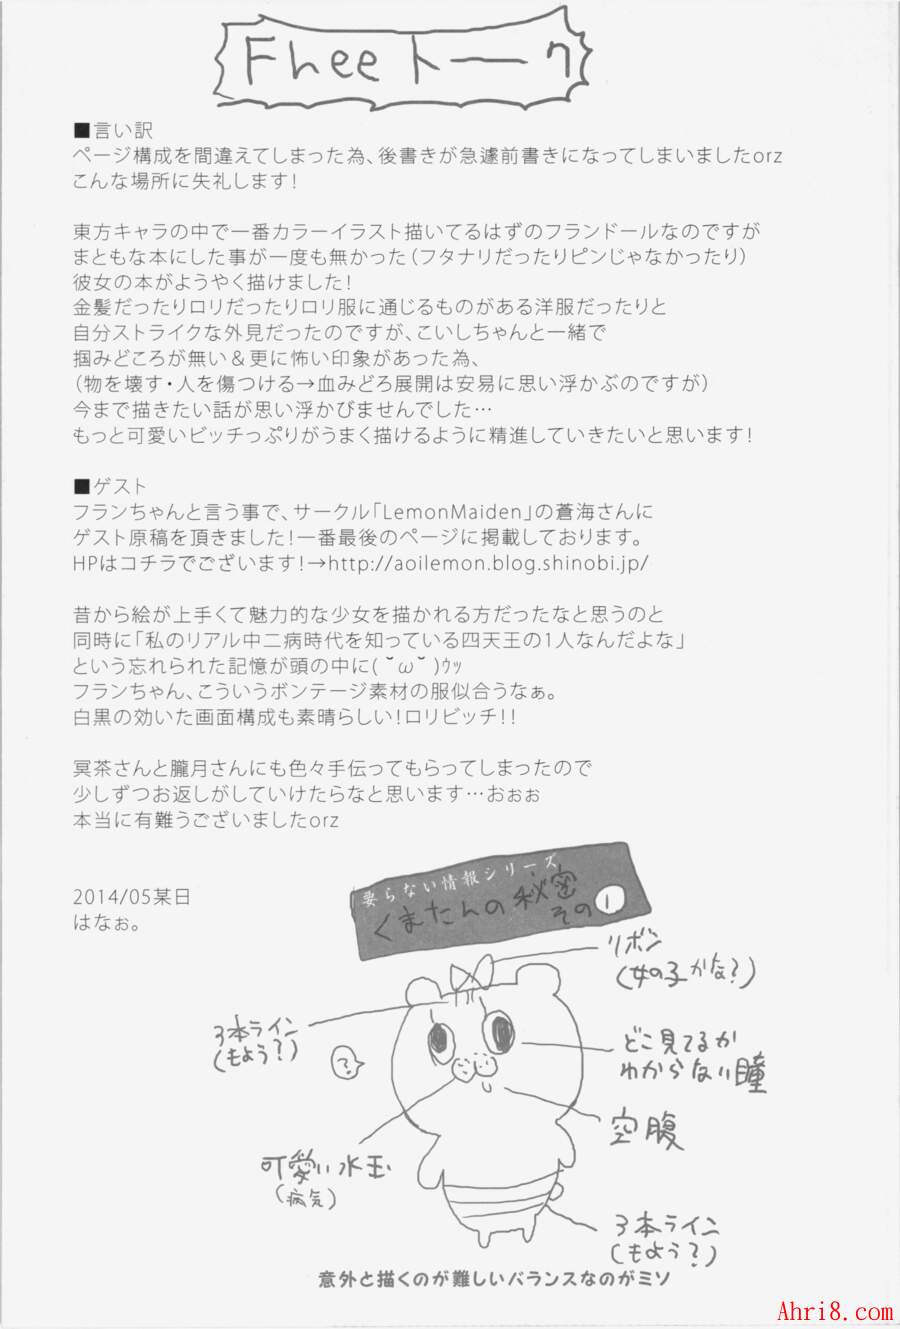 Fhee トーク
■言い訳
ページ構成を間違えてしまった為、後書きが急遽前書きになってしまいましたorz
こんな場所に失礼します!
東方キャラの中で一番カラーイラスト描いてるはずのフランドールなのですが
まともな本にした事が一度も無かった(フタナリだったりピンじゃなかったり)
彼女の本がようやく描けました!
金髪だったりロリだったりロリ服に通じるものがある洋服だったりと
自分ストライクな外見だったのですが、こいしちゃんと一緒で
掴みどころが無い&更に怖い印象があった為、
(物を壊す・人を傷つける→血みどろ展開は安易に思い浮かぶのですが)
今まで描きたい話が思い浮かびませんでした…
もっと可愛いビッチっぷりがうまく描けるように精進していきたいと思います!
■ゲスト
フランちゃんと言う事で、サークル「LemonMaiden」の蒼海さんに
ゲスト原稿を頂きました!一番最後のページに掲載しております。
HPはコチラでございます!→http://aoilemon.blog.shinobi.jp/
昔から絵が上手くて魅力的な少女を描かれる方だったなと思うのと
同時に「私のリアル中二病時代を知っている四天王の1人なんだよな」
という忘れられた記憶が頭の中に( ˘ω˘ )ゥッ
フランちゃん、こういうボンテージ素材の服似合うなぁ。
白黒の効いた画面構成も素晴らしい!ロリビッチ!!
冥茶さんと朧月さんにも色々手伝ってもらってしまったので
少しずつお返しがしていけたらなと思います…おぉぉ
本当に有難うございましたorz
2014/05某日
はなぉ。
要らない情報シリーズ
くまたんの秘密
その1
リボン
(女の子かな?)
3本ライン
(もよう?)
?
どこ見てるか
わからない瞳
空腹
可愛い水玉
(病気)
3本ライン
(もよう?)
意外と描くのが難しいバランスなのがミソ
Ahri8.com